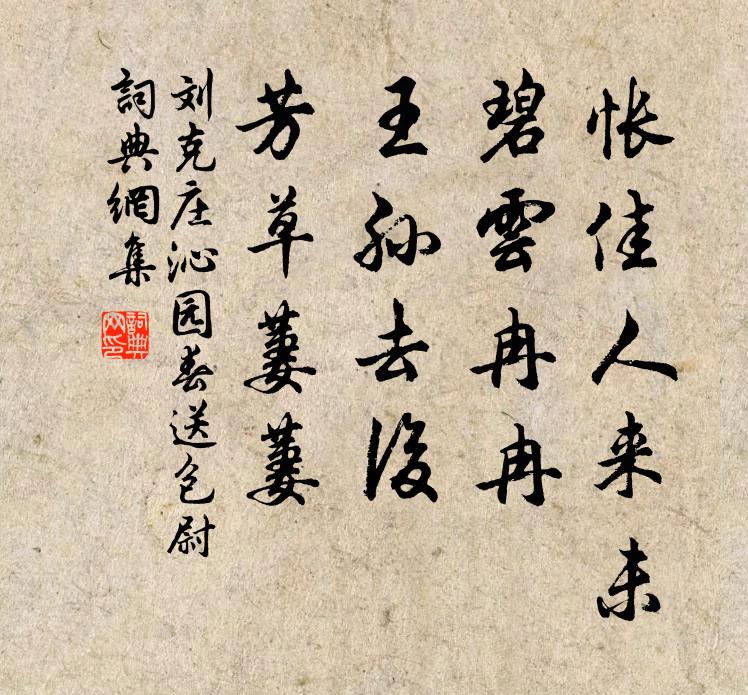 怅佳人来未
碧雲冉冉
王孙去後
芳草萋萋
刘克庄沁园春送包尉
詞典網集
詞典网印